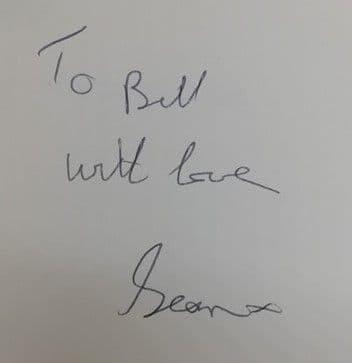 To
Bill
with love
Sean x